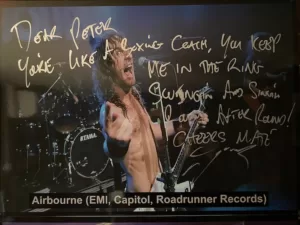 DEAR PETER
YOU'RE LIKE A BOXING COACH, YOU KEEP
ME IN THE RING
SWINGIN' AND
ROUND AFTER ROUND!
CHEERS MATE
TAMA
Airbourne (EMI, Capitol, Roadrunner Records)